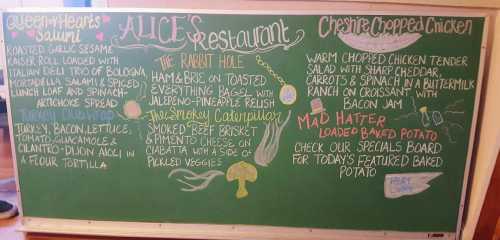 Queen of Hearts
Salumi
ROASTED GARLIC SESAME
KAISER ROLL LOADED WITH
ITALIAN DELI TRIO OF BOLOGNA,
MORTADELLA, SALAMI & SPICED
LUNCH LOAF AND SPINACH-
ARTICHOKE SPREAD
Turkey Club Wrap
TURKEY, BACON, LETTUCE,
TOMATO, GUACAMOLE &
CILANTRO-DIJON AIOLI IN
A FLOUR TORTILLA
ALICE'S
Restaurant
THE RABBIT HOLE
HAM & BRIE ON TOASTED
EVERYTHING BAGEL WITH
JALEPEÑO-PINEAPPLE RELISH
The Smokey Caterpillar
SMOKED BEEF BRISKET
& PIMENTO CHEESE ON
CIABATTA WITH A SIDE OF
PICKLED VEGGIES
Cheshire Chopped Chicken
WARM CHOPPED CHICKEN TENDER
SALAD WITH SHARP CHEDDAR,
CARROTS & SPINACH IN A BUTTERMILK
RANCH ON CROISSANT WITH
BACON JAM
MAD HATTER
LOADED BAKED POTATO
CHECK OUR SPECIALS BOARD
FOR TODAY'S FEATURED BAKED
POTATO